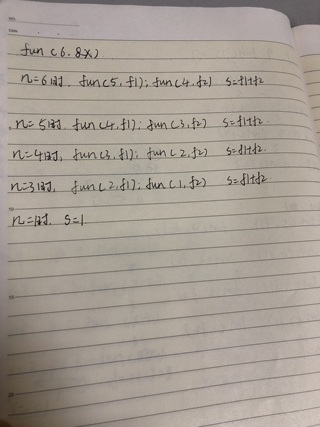 fun(6.&x)
n=6时. fun(5,f1); fun(4,f2) s=f1+f2
n=5时. fun(4,f1); fun(3,f2) s=f1+f2.
n=4时, fun(3,f1); fun(2,f2) s=f1+f2.
n=3时, fun(2,f1); fun(1,f2) s=f1+f2
n=1时. s=1